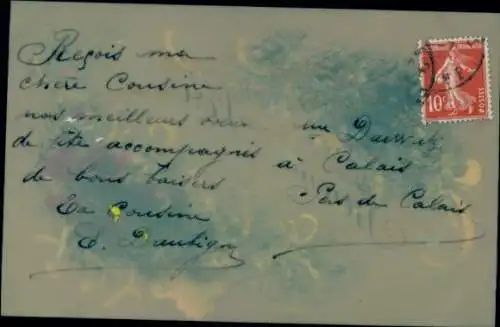 Reçois ma
chère Cousine
nos meilleurs vœux
de fête accompagnés
de bons baisers
Ta Cousine
à Calais
Pas de Calais
10c
POSTES